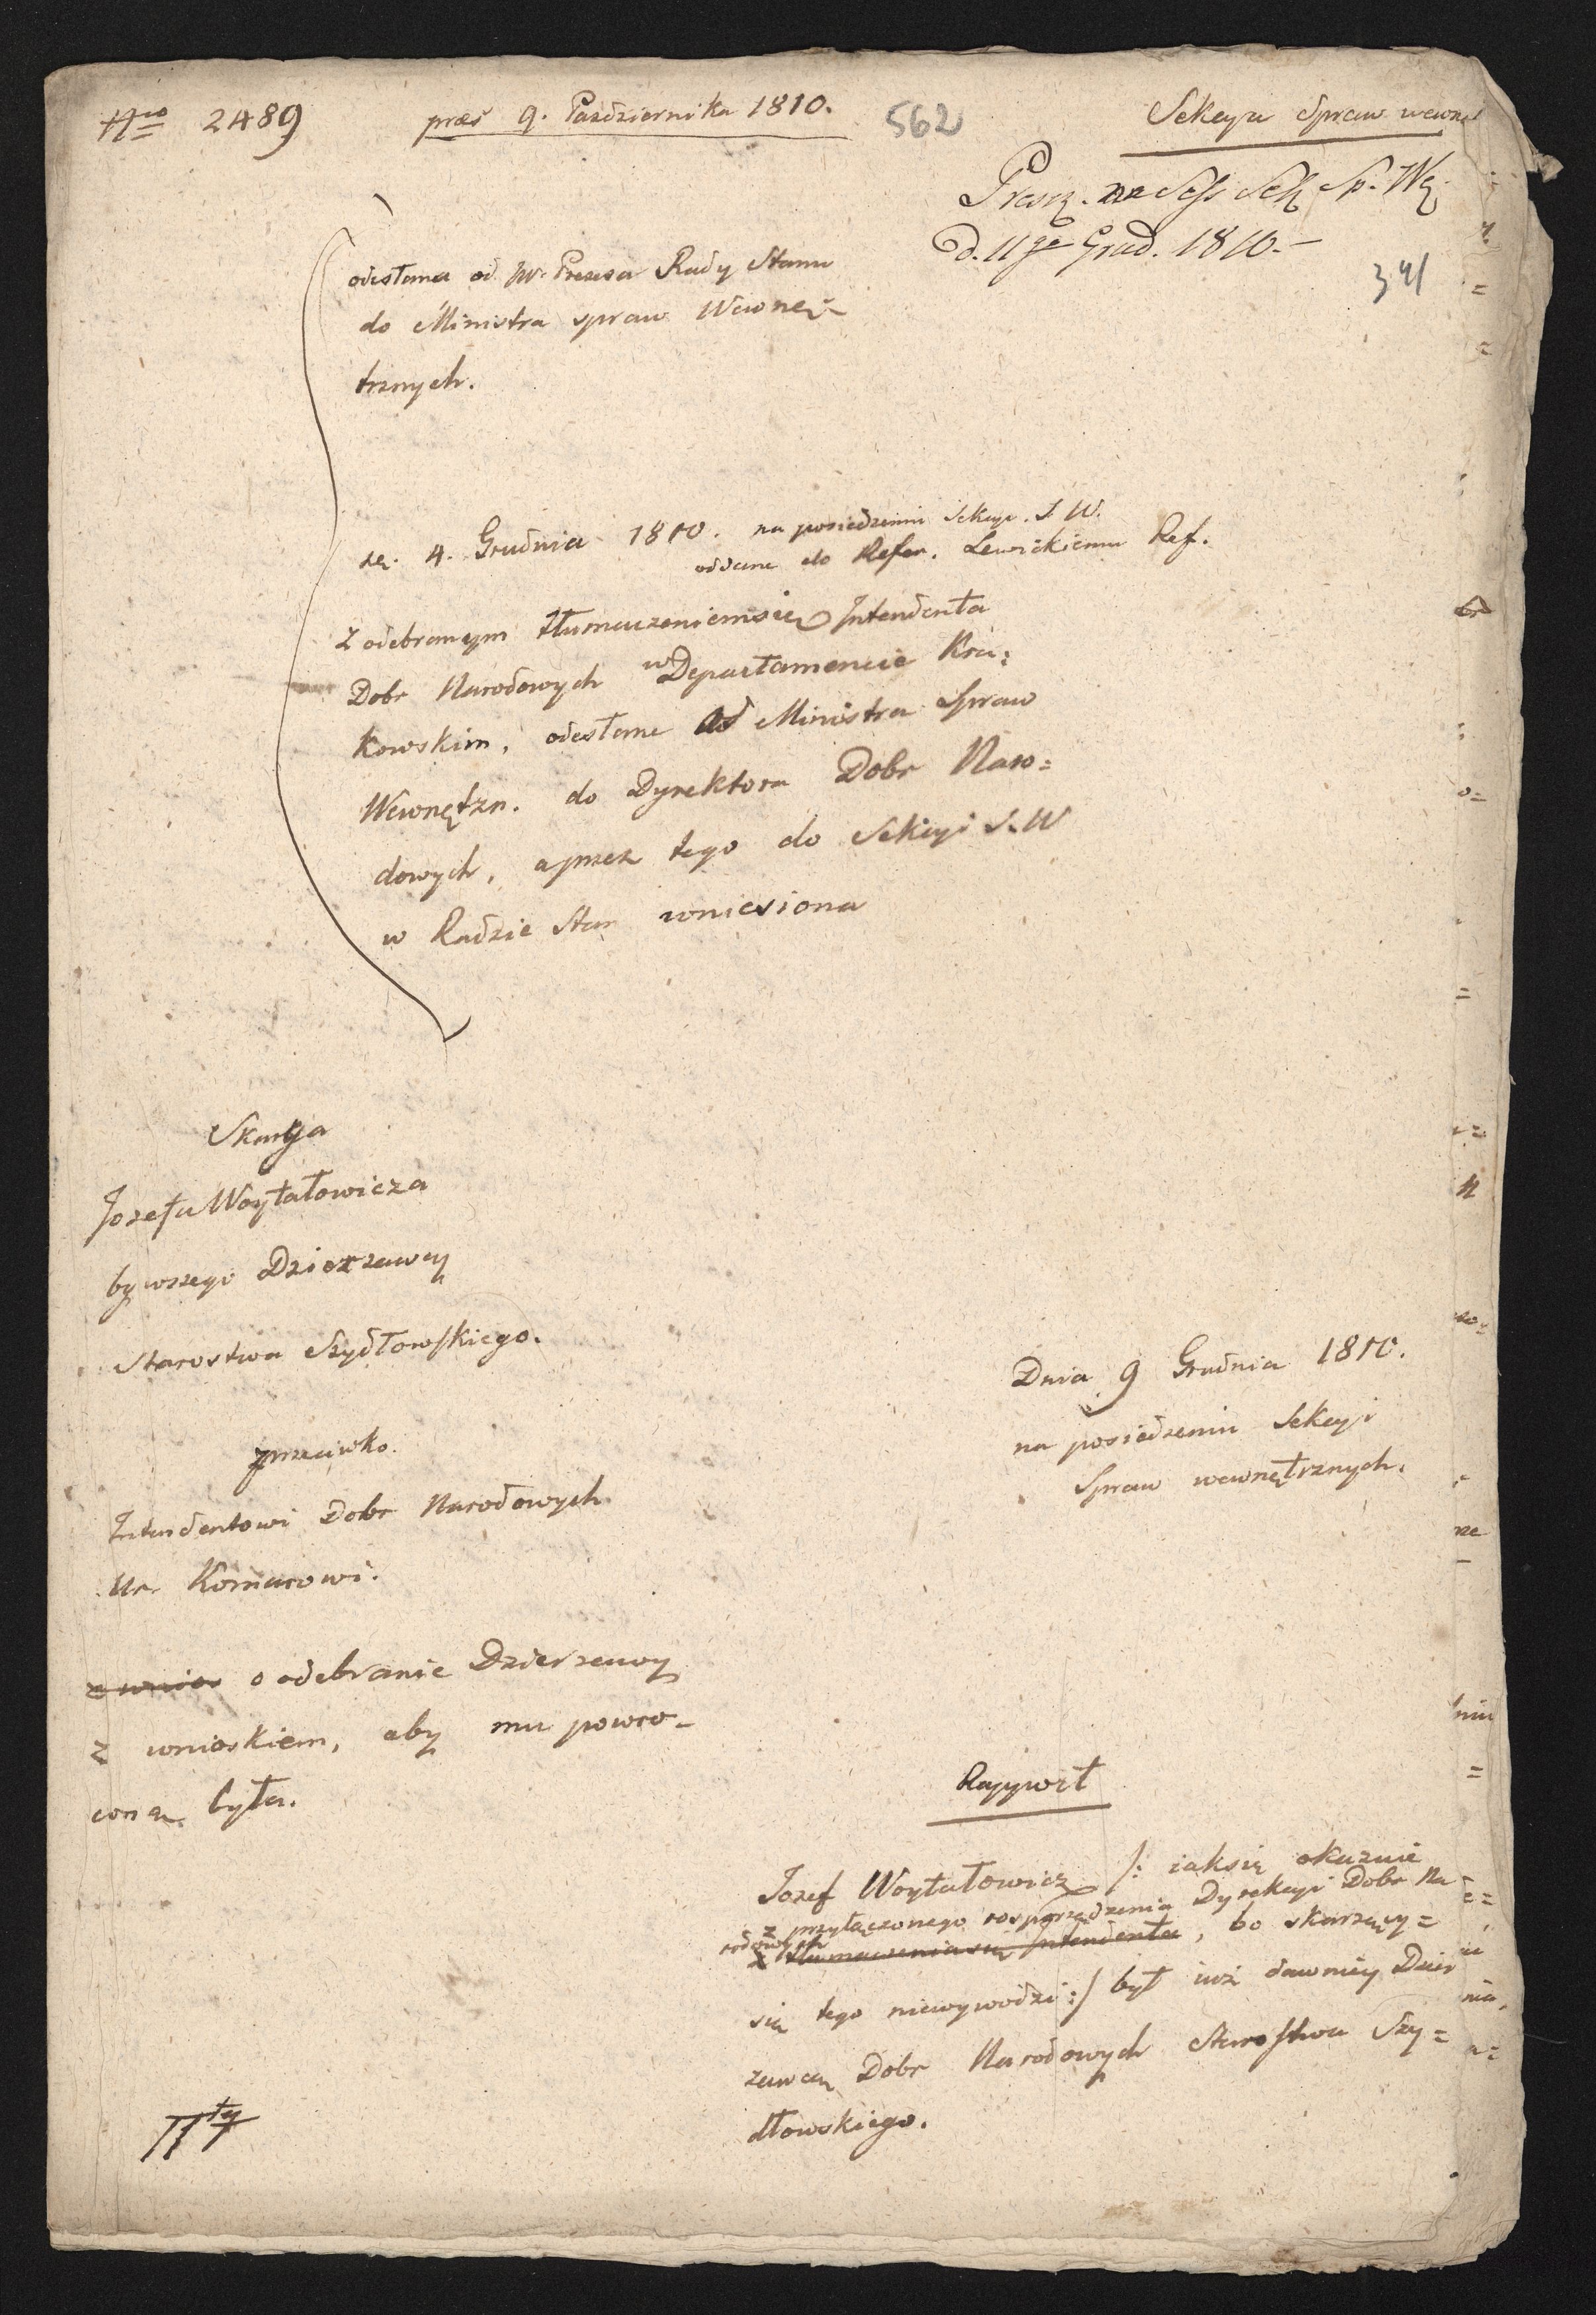 Nro 2489
præs 9. Pazdziernika 1810.
562
Sekcya Spraw wewnę
Sess Sek Sp. Wę.
d. 11go Grud. 1810.-
341
odesłana od JW. Prezesa Rady Stanu
do Ministra spraw Wewnę-
trznych.
4. Grudnia 1810. na posiedzeniu Sekcyi. S. W.
oddane do Refer. Lewickiemu Ref.
z odebranym tłumaczeniemsię Intendenta
Dobr Narodowych w Departamencie Kra:
kowskim, odesłane od Ministra Spraw
Wewnętzn. do Dyrektora Dobr Naro=
dowych, a przez tego do Sekcyi S. W
w Radzie Stan wniesiona
Skarga
Jozefa Woytałowicza
bywszego Dzierzawcy
Starostwa Szydłowskiego.
przeciwko.
Intendentowi Dobr Narodowych
Ur. Komarowi.
z wnios o odebranie Dzierzawy
z wnioskiem, aby mu powro-
coną była.
Dnia 9 Grudnia 1810.
na posiedzeniu Sekcyi
Spraw wewnętrznych.
Rapport
Jozef Woytałowicz /: iaksię okazuie
z przyłączonego rosporządzenia Dyrekcyi Dobr Na
rodowych
z tłumaczeniasię Intendenta, bo skarzący=
się tego niewywodzi :/ był iuż dawniey Dzier
zawcą Dobr Narodowych Starostwa Szy=
dłowskiego.